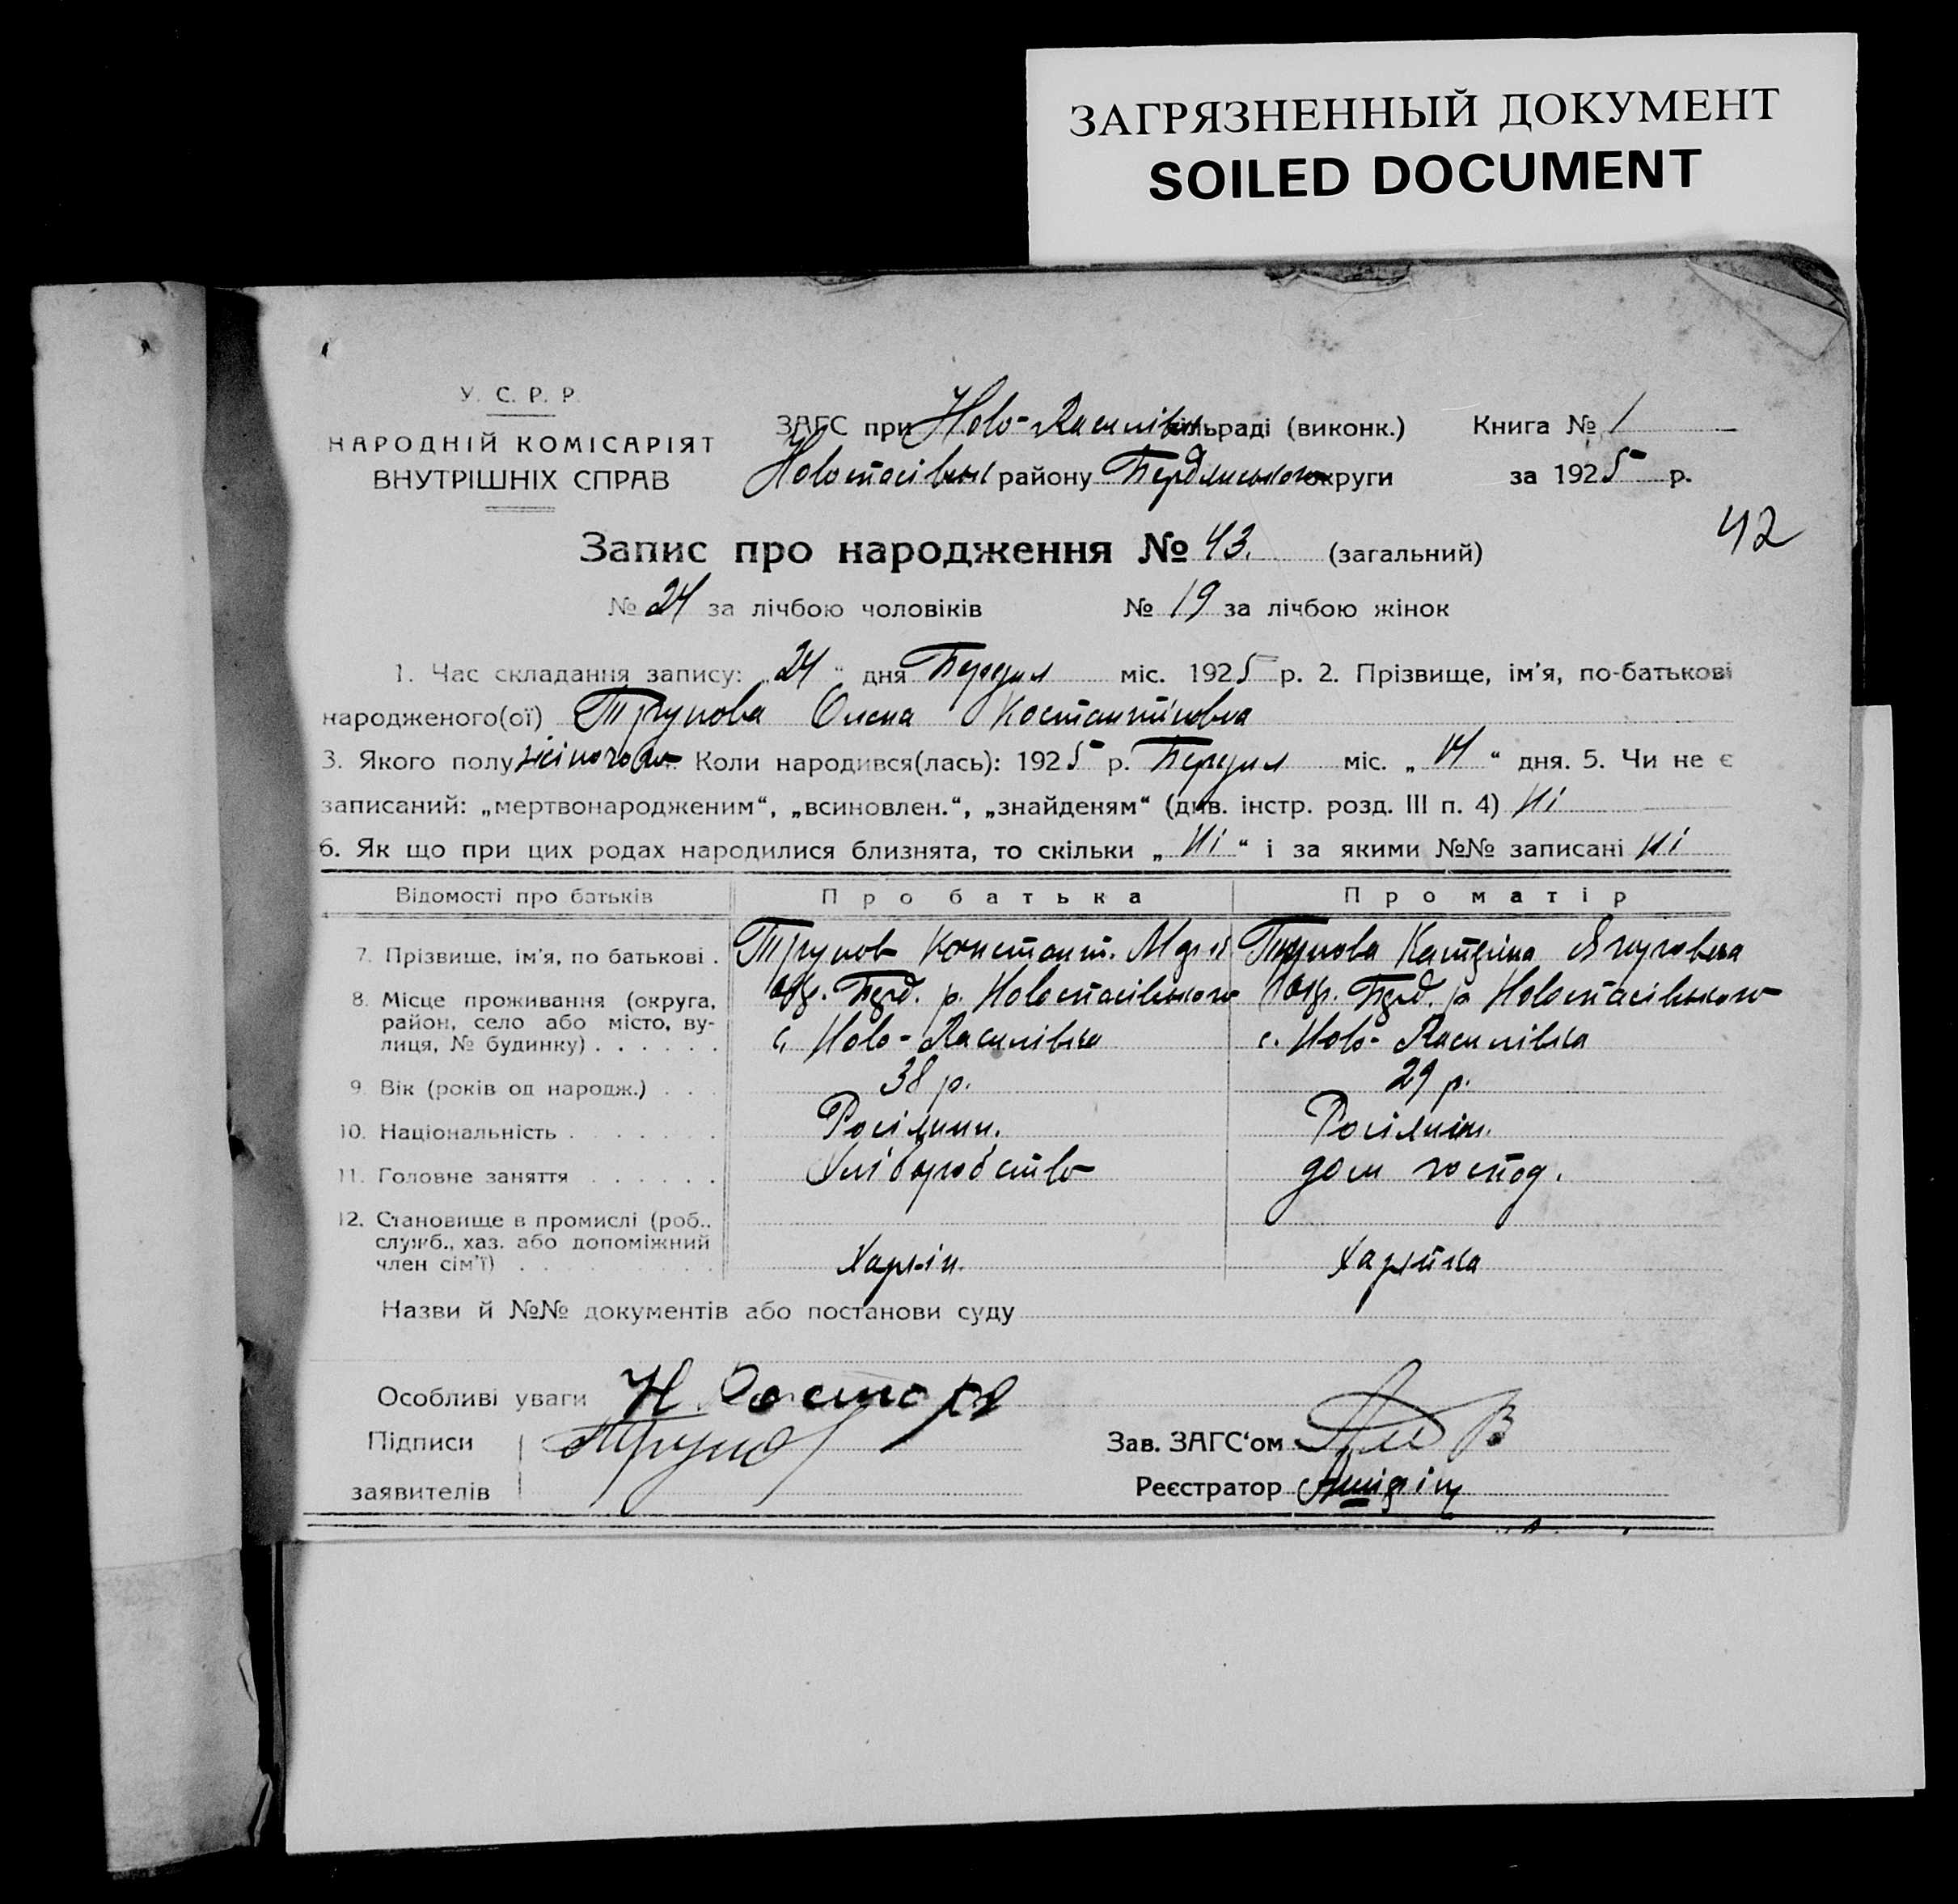 ЗАГРЯЗНЕННЫЙ ДОКУМЕНТ
SOILED DOCUMENT
У. С. Р. Р.
НАРОДНІЙ КОМІСАРІЯТ
ВНУТРІШНІХ СПРАВ
ЗАГС при Ново-Василівськ. сільраді (виконк.) Книга № 1
району Бердянського округи за 1925 р.
42
Запис про народження № 43. (загальний)
№ 24 за лічбою чоловіків № 19 за лічбою жінок
1. Час складання запису: „24“ дня Березня міс. 1925 р. 2. Прізвище, ім'я, по-батькові
народженого(ої) Трунова Олена Костантіновна
3. Якого полу жіночого Коли народився(лась): 1925 р. Березня міс. „14“ дня. 5. Чи не є
записаний: „мертвонародженим“, „всиновлен.“, „знайденям“ (див. інстр. розд. III п. 4) Ні
6. Як що при цих родах народилися близнята, то скільки „Ні“ і за якими №№ записані Ні
Відомості про батьків Про батька Про матір
7. Прізвище, ім'я, по батькові . Трунов Констант. Трунова Катеріна
8. Місце проживання (округа, район, село або місто, вулиця, № будинку) . . . . . . окр. Берд. р. окр. Берд. р.
с. Ново-Василівка с. Ново-Василівка
9. Вік (років од народж.) . . . 38 р. 29 р.
10. Національність . . . . . . . Росіянин. Росіянін.
11. Головне заняття . . . . . . Хліборобство дом господ.
12. Становище в промислі (роб., служб., хаз. або допоміжний член сім'ї) . . . . . . . . .
Назви й №№ документів або постанови суду
Особливі уваги
Підписи Трунов Зав. ЗАГС'ом
заявителів Реєстратор